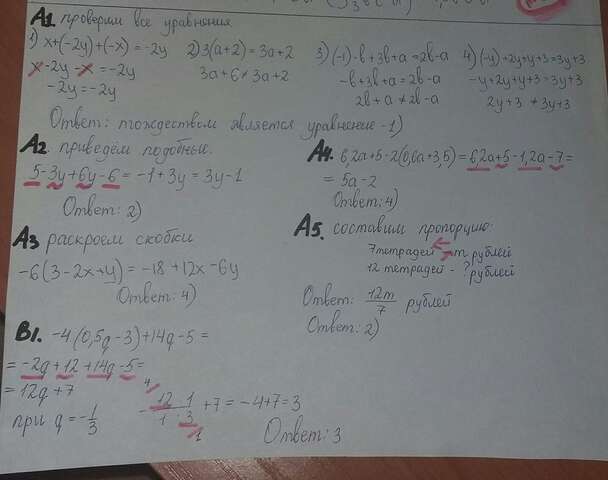 А1 проверим все уравнения
1) x+(-2y)+(-x)=-2y
x-2y-x=-2y
-2y=-2y
2) 3(a+2)=3a+2
3a+6≠3a+2
3) (-1)·b+3b+a=2b-a
-b+3b+a=2b-a
2b+a≠2b-a
4) (-y)+2y+y+3=3y+3
-y+2y+y+3=3y+3
2y+3≠3y+3
Ответ: тождеством является уравнение -1)
А2 приведём подобные.
5-3y+6y-6=-1+3y=3y-1
Ответ: 2)
А3 раскроем скобки
-6(3-2x+y)=-18+12x-6y
Ответ: 4)
А4. 6,2a+5-2(0,6a+3,5)=6,2a+5-1,2a-7=
=5a-2
Ответ: 4)
А5. составим пропорцию:
7 тетрадей - m рублей
12 тетрадей - ? рублей
Ответ: 12m/7 рублей
Ответ: 2)
В1. -4·(0,5q-3)+14q-5=
=-2q+12+14q-5=
=12q+7
при q=-1/3
-12·1/1·3+7=-4+7=3
4
1
Ответ: 3